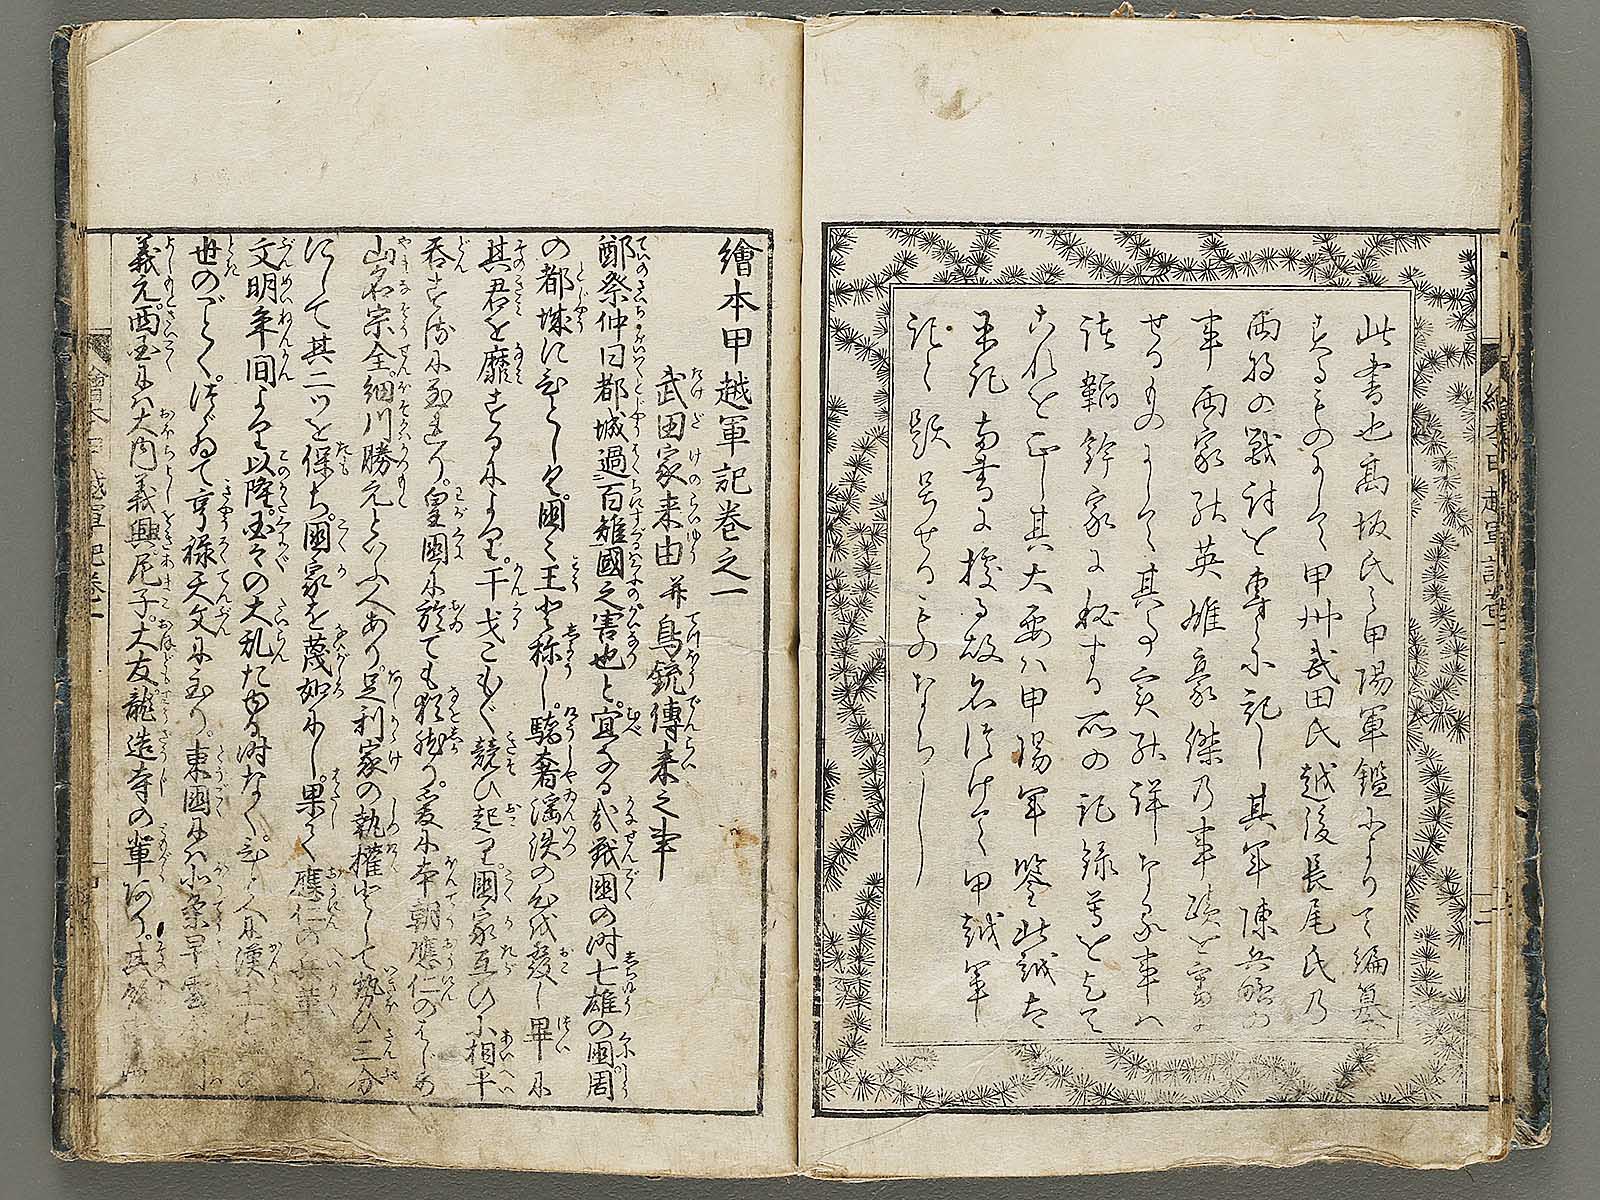 此書也高坂氏之甲陽軍鑑により編纂
するものにして甲州武田氏越後長尾氏乃
両將の戦討を専らに記し其軍陳兵略の
事両家の英雄豪傑乃事跡を
せるものにして其事実の詳なる事ハ
諸韜鈐家に秘する所の記録等を以て
これを正し其大要ハ甲陽軍鑒北越太
平記両書に據る故名づけて甲越軍
記と題号せるものならし
繪本甲越軍記巻之一
武田家来由并鳥銃傳来之事
鄭祭仲曰都城過百雉國之害也と宜なる哉戦國の時七雄の國周
の都城にひとしく國々王と称し驕奢滛泆の心を發し畢に
其君を靡するによりて干戈こもごも競ひ起りて國家互ひに相平
呑するに至れり皇國に於ても猶然り爰に本朝應仁のはじめ
山名宗全細川勝元といふ人あり足利家の執権として勢ひ二分
にして其二ツを保ち國家を蔑如にし果して應仁の兵革
文明年間より以降国々の大乱たゆる時なくひとへに漢土
世のごとくつゞゐて享禄天文に至り東國にハ北条早雲
義元西国にハ大内義興尼子大友龍造寺の輩あり
繪本甲越軍記巻一